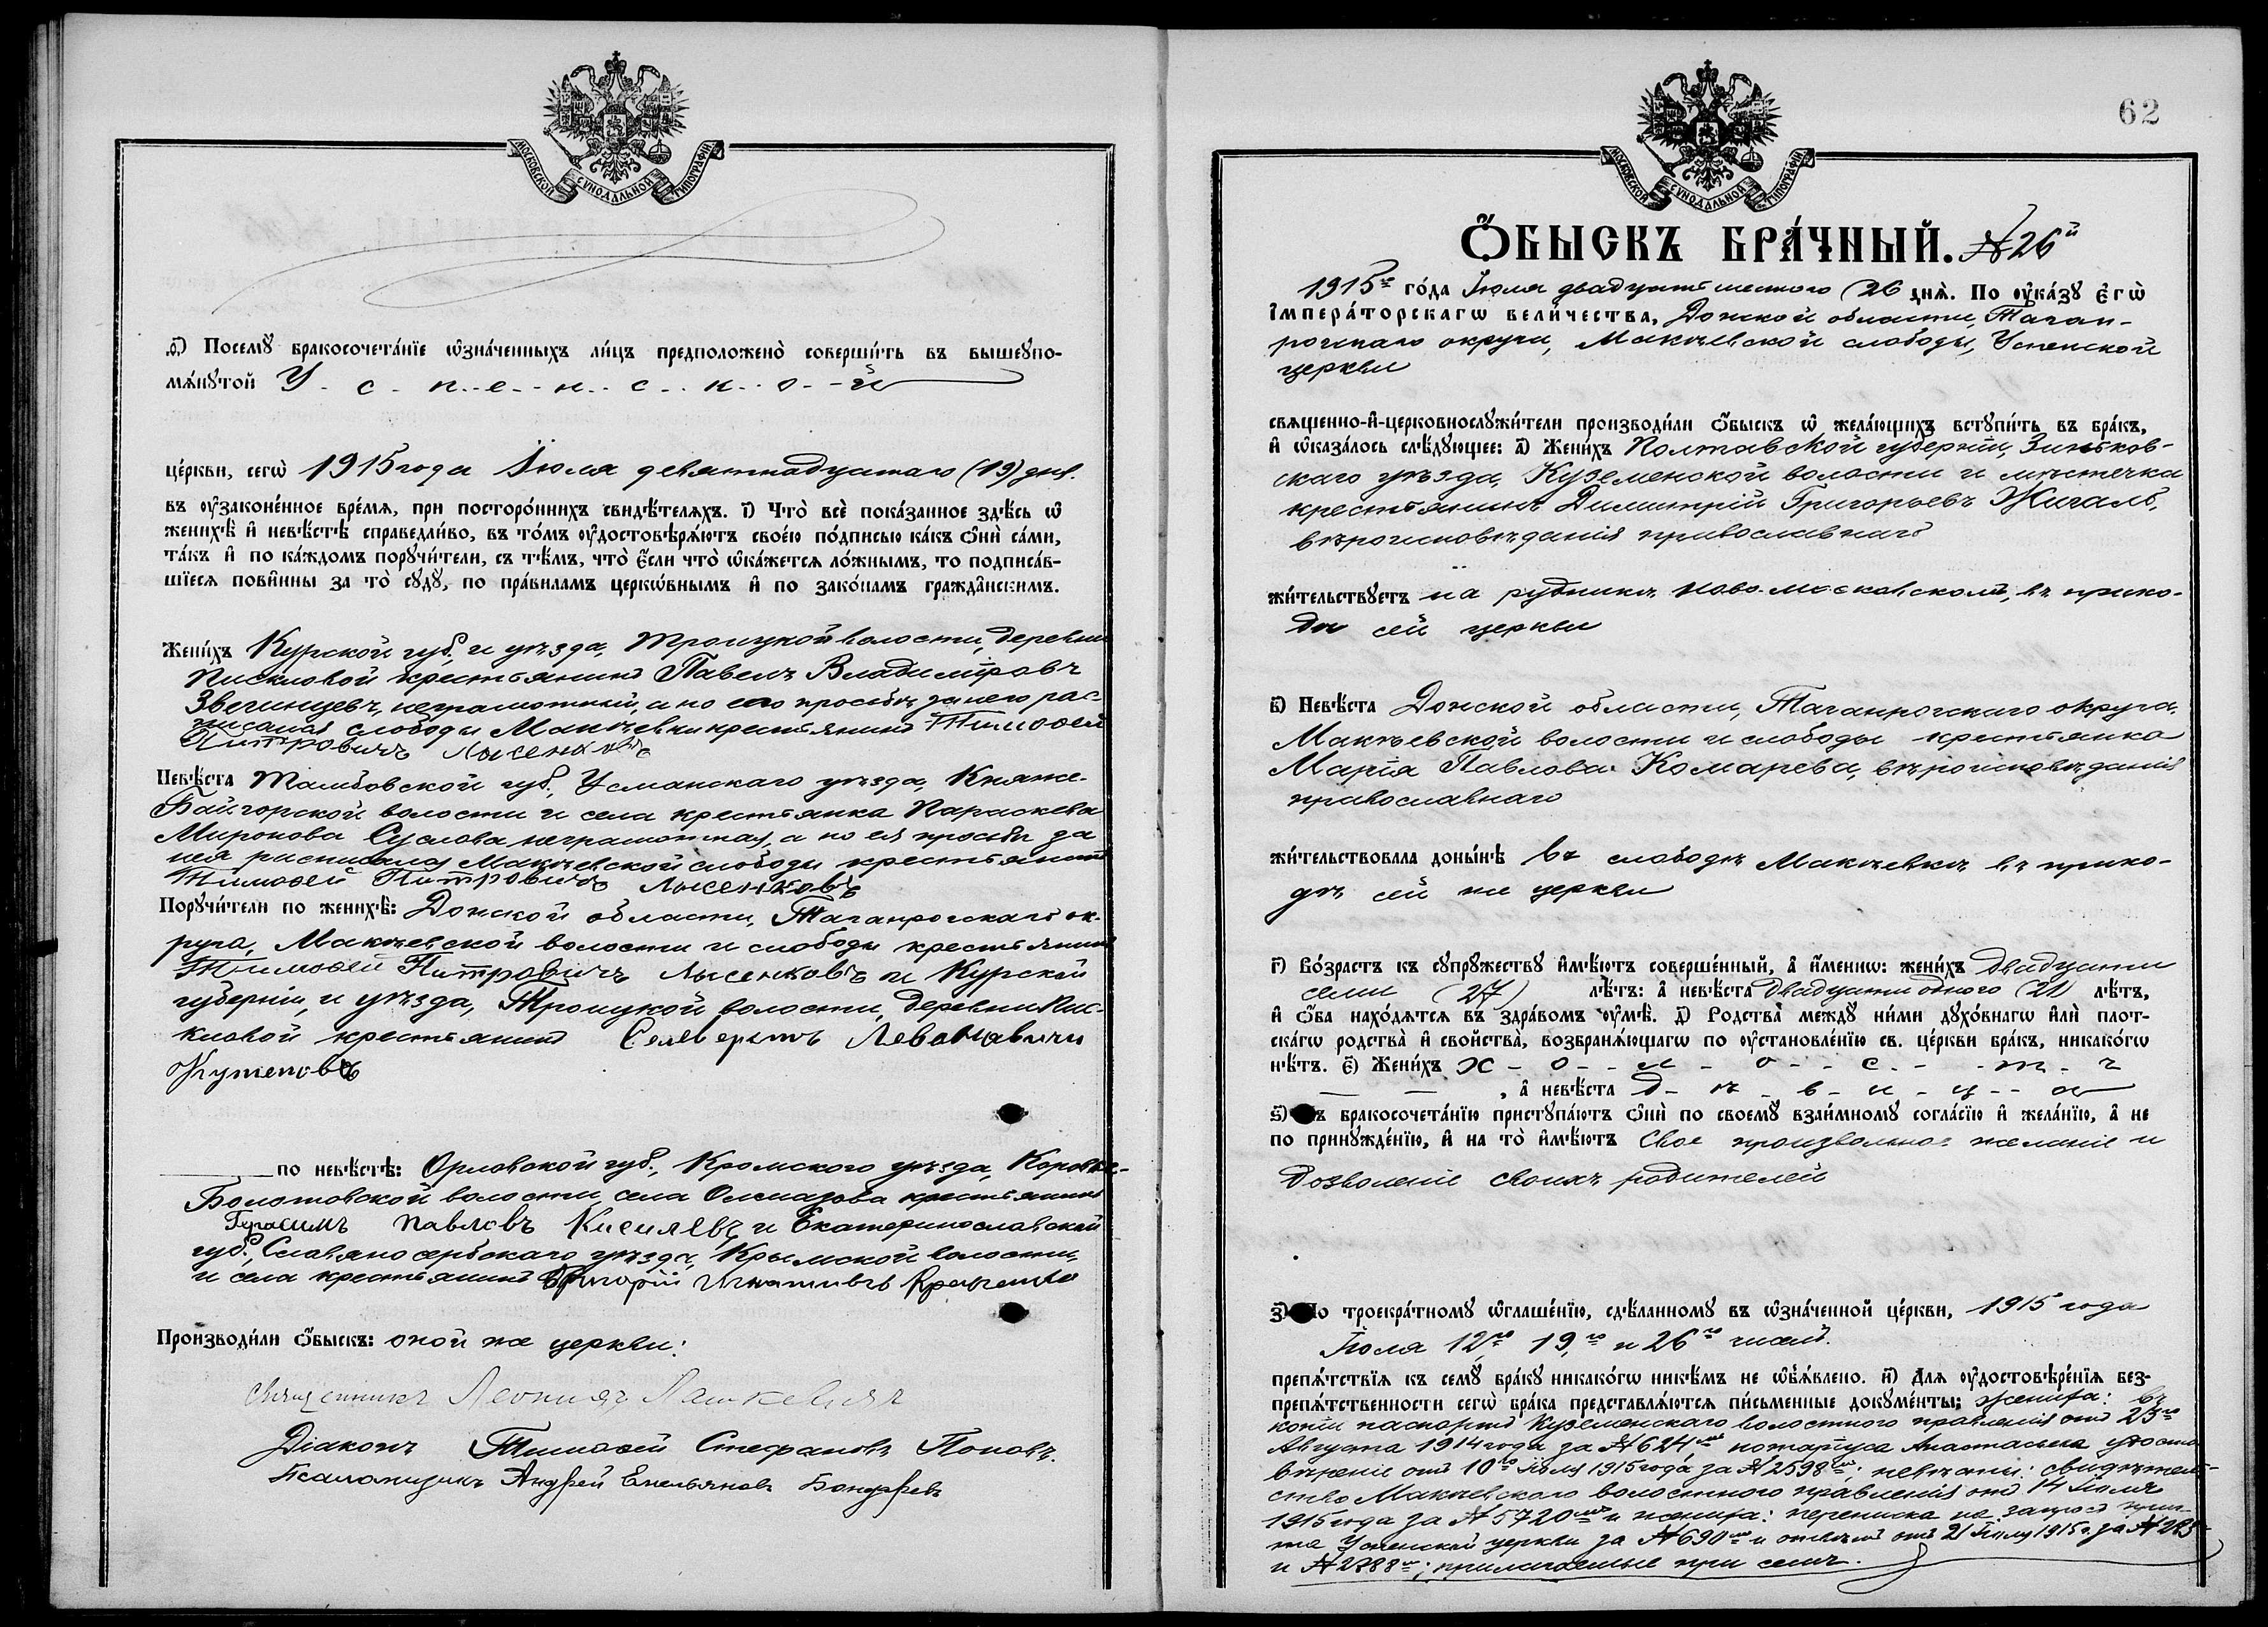 МОСКОВСКОЙ СѴНОДАЛЬНОЙ ТИПОГРАФІИ
ѳ҃) Посемꙋ̀ бракосочета́нїе ѡ҆зна́ченныхъ ли́цъ предположено̀ соверши́ть въ вышеꙋпо-
мѧ́нꙋтой У - с - п - е - н - с - к - о - й
це́ркви, сегѡ̀ 1915 года Іюля девятнадцатаго (19) дня.
въ ᲂу҆зако́ненное вре́мѧ, при посторо́ннихъ свидѣ́телѧхъ. і҃) Что̀ всѐ пока́занное здѣ́сь ѡ҆
женихѣ̀ и҆ невѣ́стѣ справедли́во, въ то́мъ ᲂу҆достовѣрѧ́ютъ свое́ю по́дписью ка́къ ѻ҆нѝ са́ми,
та́къ и҆ по ка́ждомъ порꙋчи́тели, съ тѣ́мъ, что̀ є҆́сли что̀ ѡ҆ка́жетсѧ ло́жнымъ, то подписа́в-
шїесѧ пови́нны за то̀ сꙋдꙋ̀, по пра́виламъ церко́внымъ и҆ по зако́намъ гражда́нскимъ.
Жени́хъ Курской губ., и уѣзда, Троицкой волости, деревни
Пискловой крестьянинъ Павелъ Владиміровъ
Звегинцевъ, неграмотный, а по его просьбѣ за него рас-
писался слободы Макѣевки крестьянинъ Тимофей
Питровичъ Лысенковъ
Невѣ́ста Тамбовской губ., Усманскаго уѣзда, Княже-
Байгорской волости и села крестьянка Параскева
Миронова Суслова неграмотная, а по ея просьбѣ за
нея расписался Макѣевской слободы крестьянинъ
Тимофей Питровичъ Лысенковъ
Порꙋчи́тели по женихѣ̀: Донской области, Таганрогскаго ок-
руга, Макѣевской волости и слободы крестьянинъ
Тимофей Питровичъ Лысенковъ и Курской
губерніи, и уѣзда, Троицкой волости, деревни Пис-
кловой крестьянинъ
по невѣ́стѣ: Орловской губ., Кромского уѣзда, Коровье-
Болотовской волости, села крестьянинъ
Павловъ Кисилевъ, и Екатеринославской
губ., Славяносербскаго уѣзда, Крымской волости,
и села крестьянинъ Григорій
Производи́ли ѻ҆́быскъ: оной же церкви:
Священникъ Леонидъ
Діаконъ Тимофей Стефановъ Поповъ.
Псаломщикъ Андрей Емельяновъ Бондарев
62
МОСКОВСКОЙ СѴНОДАЛЬНОЙ ТИПОГРАФІИ
Ѻ҆́БЫСКЪ БРА́ЧНЫЙ. № 26й
1915го го́да Іюля двадцать шестого (26 днѧ̀. По ᲂу҆ка́зꙋ є҆гѡ̀
І҆мпера́торскагѡ вели́чества, Донской области, Таган-
рогскаго округа, Макѣевской слободы, Успенской
церкви
свѧщенно-и҆-церковнослꙋжи́тели производи́ли ѻ҆́быскъ ѡ҆ жела́ющихъ встꙋпи́ть въ бра́къ,
и҆ ѡ҆каза́лось слѣ́дꙋющее: а҃) Жени́хъ Полтавской губерніи, Зиньков-
скаго уѣзда, Куземенской волости и мѣстечка
крестьянинъ Димитрій Григорьевъ Жигаль,
вѣроисповѣданія православнаго
жи́тельствꙋетъ на рудникѣ Ново-Московскомъ, въ прихо-
дѣ сей церкви
в҃) Невѣ́ста Донской области, Таганрогскаго округа,
Макѣевской волости и слободы крестьянка
Марія Павлова Комарева, вѣроисповѣданія
православнаго
жи́тельствовала доны́нѣ въ слободѣ Макѣевкѣ въ прихо-
дѣ сей же церкви
г҃) Во́зрастъ къ сꙋпрꙋ́жествꙋ и҆мѣ́ютъ соверше́нный, а҆ и҆́менно: жени́хъ двадцати
семи (27) лѣ́тъ: а҆ невѣ́ста двадцати одного (21) лѣ́тъ,
и҆ ѻ҆́ба нахо́дѧтсѧ въ здра́вомъ ᲂу҆мѣ̀. д҃) Родства̀ междꙋ̀ ни́ми дꙋхо́внагѡ и҆лѝ плот-
ска́гѡ родства̀ и҆ свойства̀, возбранѧ́ющагѡ по ᲂу҆становле́нїю св. це́ркви бра́къ, никако́гѡ
нѣ́тъ. є҃) Жени́хъ х - о - л - о - с - т - ъ
, а҆ невѣ́ста д - ѣ - в - и - ц - а
ѕ҃) Къ бракосочета́нїю пристꙋпа́ютъ ѻ҆нѝ по своемꙋ̀ взаи́мномꙋ согла́сїю и҆ жела́нїю, а҆ не
по принꙋжде́нїю, и҆ на то̀ и҆мѣ́ютъ свое произвольное желаніе и
дозволеніе своихъ родителей
з҃) По троекра́тномꙋ ѡ҆глаше́нїю, сдѣ́ланномꙋ въ ѡ҆зна́ченной це́ркви, 1915 года
Іюля 12го, 19го и 26го чиселъ.
препѧ́тствїѧ къ семꙋ̀ бра́кꙋ никако́гѡ никѣ́мъ не ѡ҆б̾ѧ́влено. и҃) Длѧ ᲂу҆достовѣре́нїѧ без-
препѧ́тственности сегѡ̀ бра́ка представлѧ́ютсѧ пи́сьменные докꙋме́нты: жениха: въ
копіи паспортъ Куземенскаго волостного правленія отъ 23го
Августа 1914 года за № 624 нотаріуса Анастасьева удосто-
вѣреніе отъ 10го Іюля 1915 года за № 2598; невѣсты: свидѣтель-
ство Макѣевскаго волостного правленія отъ 14 Іюля
1915 года за № 5720 и жениха: переписка на запросъ прич-
та Успенской церкви за № 690 и отвѣтъ отъ 21 Іюля 1915 г. за № 285
и № 2788; прилагаемые при семъ.